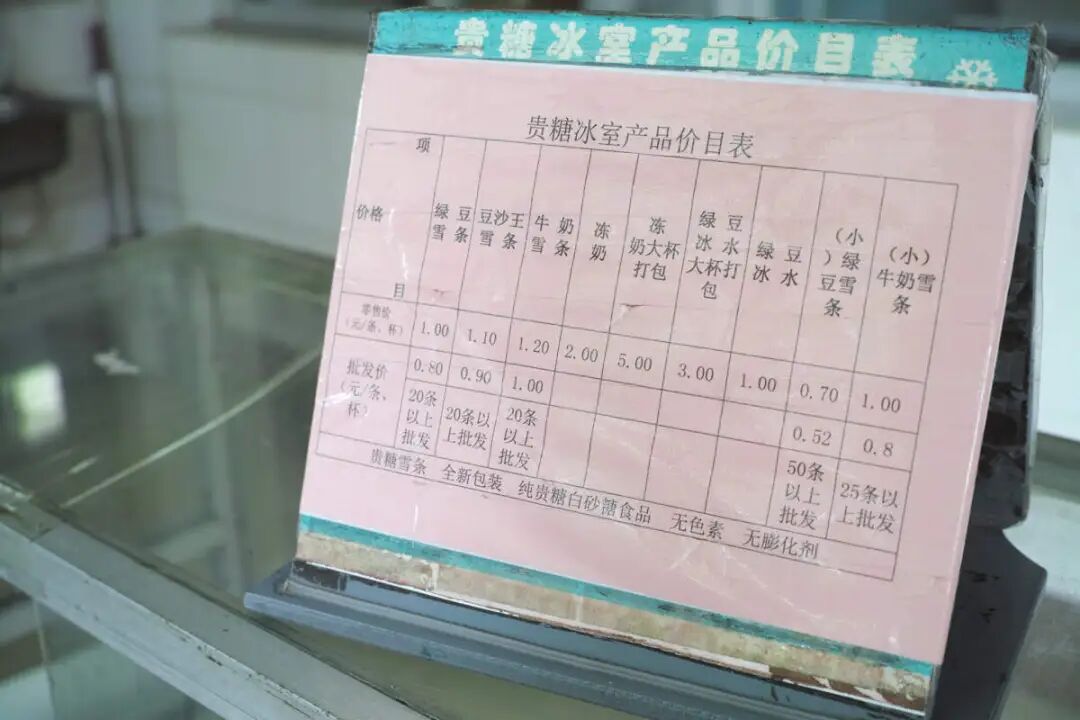 贵糖冰室产品价目表
贵糖冰室产品价目表
项
价格
目
绿豆
雪条
豆沙王
雪条
牛奶
雪条
冻
奶
冻
奶大杯
打包
绿豆
冰水
大杯打
包
绿豆
冰水
（小
）绿
豆雪
条
（小）
牛奶雪
条
零售价
（元/条、杯）
1.00 1.10 1.20 2.00 5.00 3.00 1.00 0.70 1.00
批发价
（元/条、
杯）
0.80 0.90 1.00 0.52 0.8
20条
以上
批发
20条以
上批发
20条
以上
批发
50条
以上
批发
25条以
上批发
贵糖雪条 全新包装 纯贵糖白砂糖食品 无色素 无膨化剂